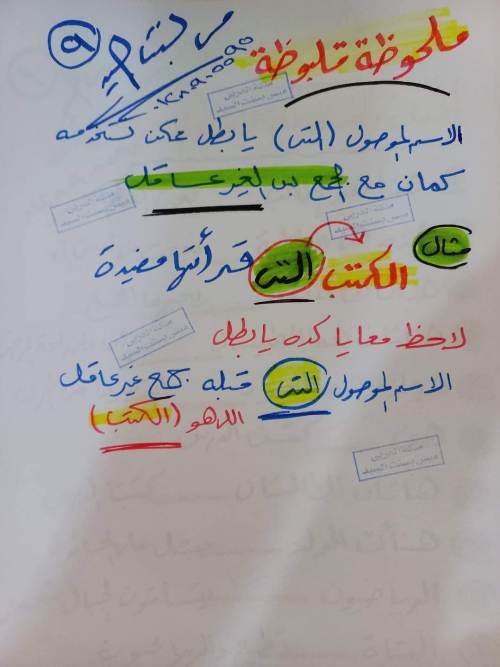 ملحوظة مقلبوظة
الاسم الموصول (التى) يا بطل ممكن تستخدمه
كمان مع الجمع بس الغير عاقل
مثال
الكتب التى قرأتها مفيدة
لاحظ معايا كده يا بطل
الاسم الموصول التى قبله جمع غير عاقل
اللى هو (الكتب)